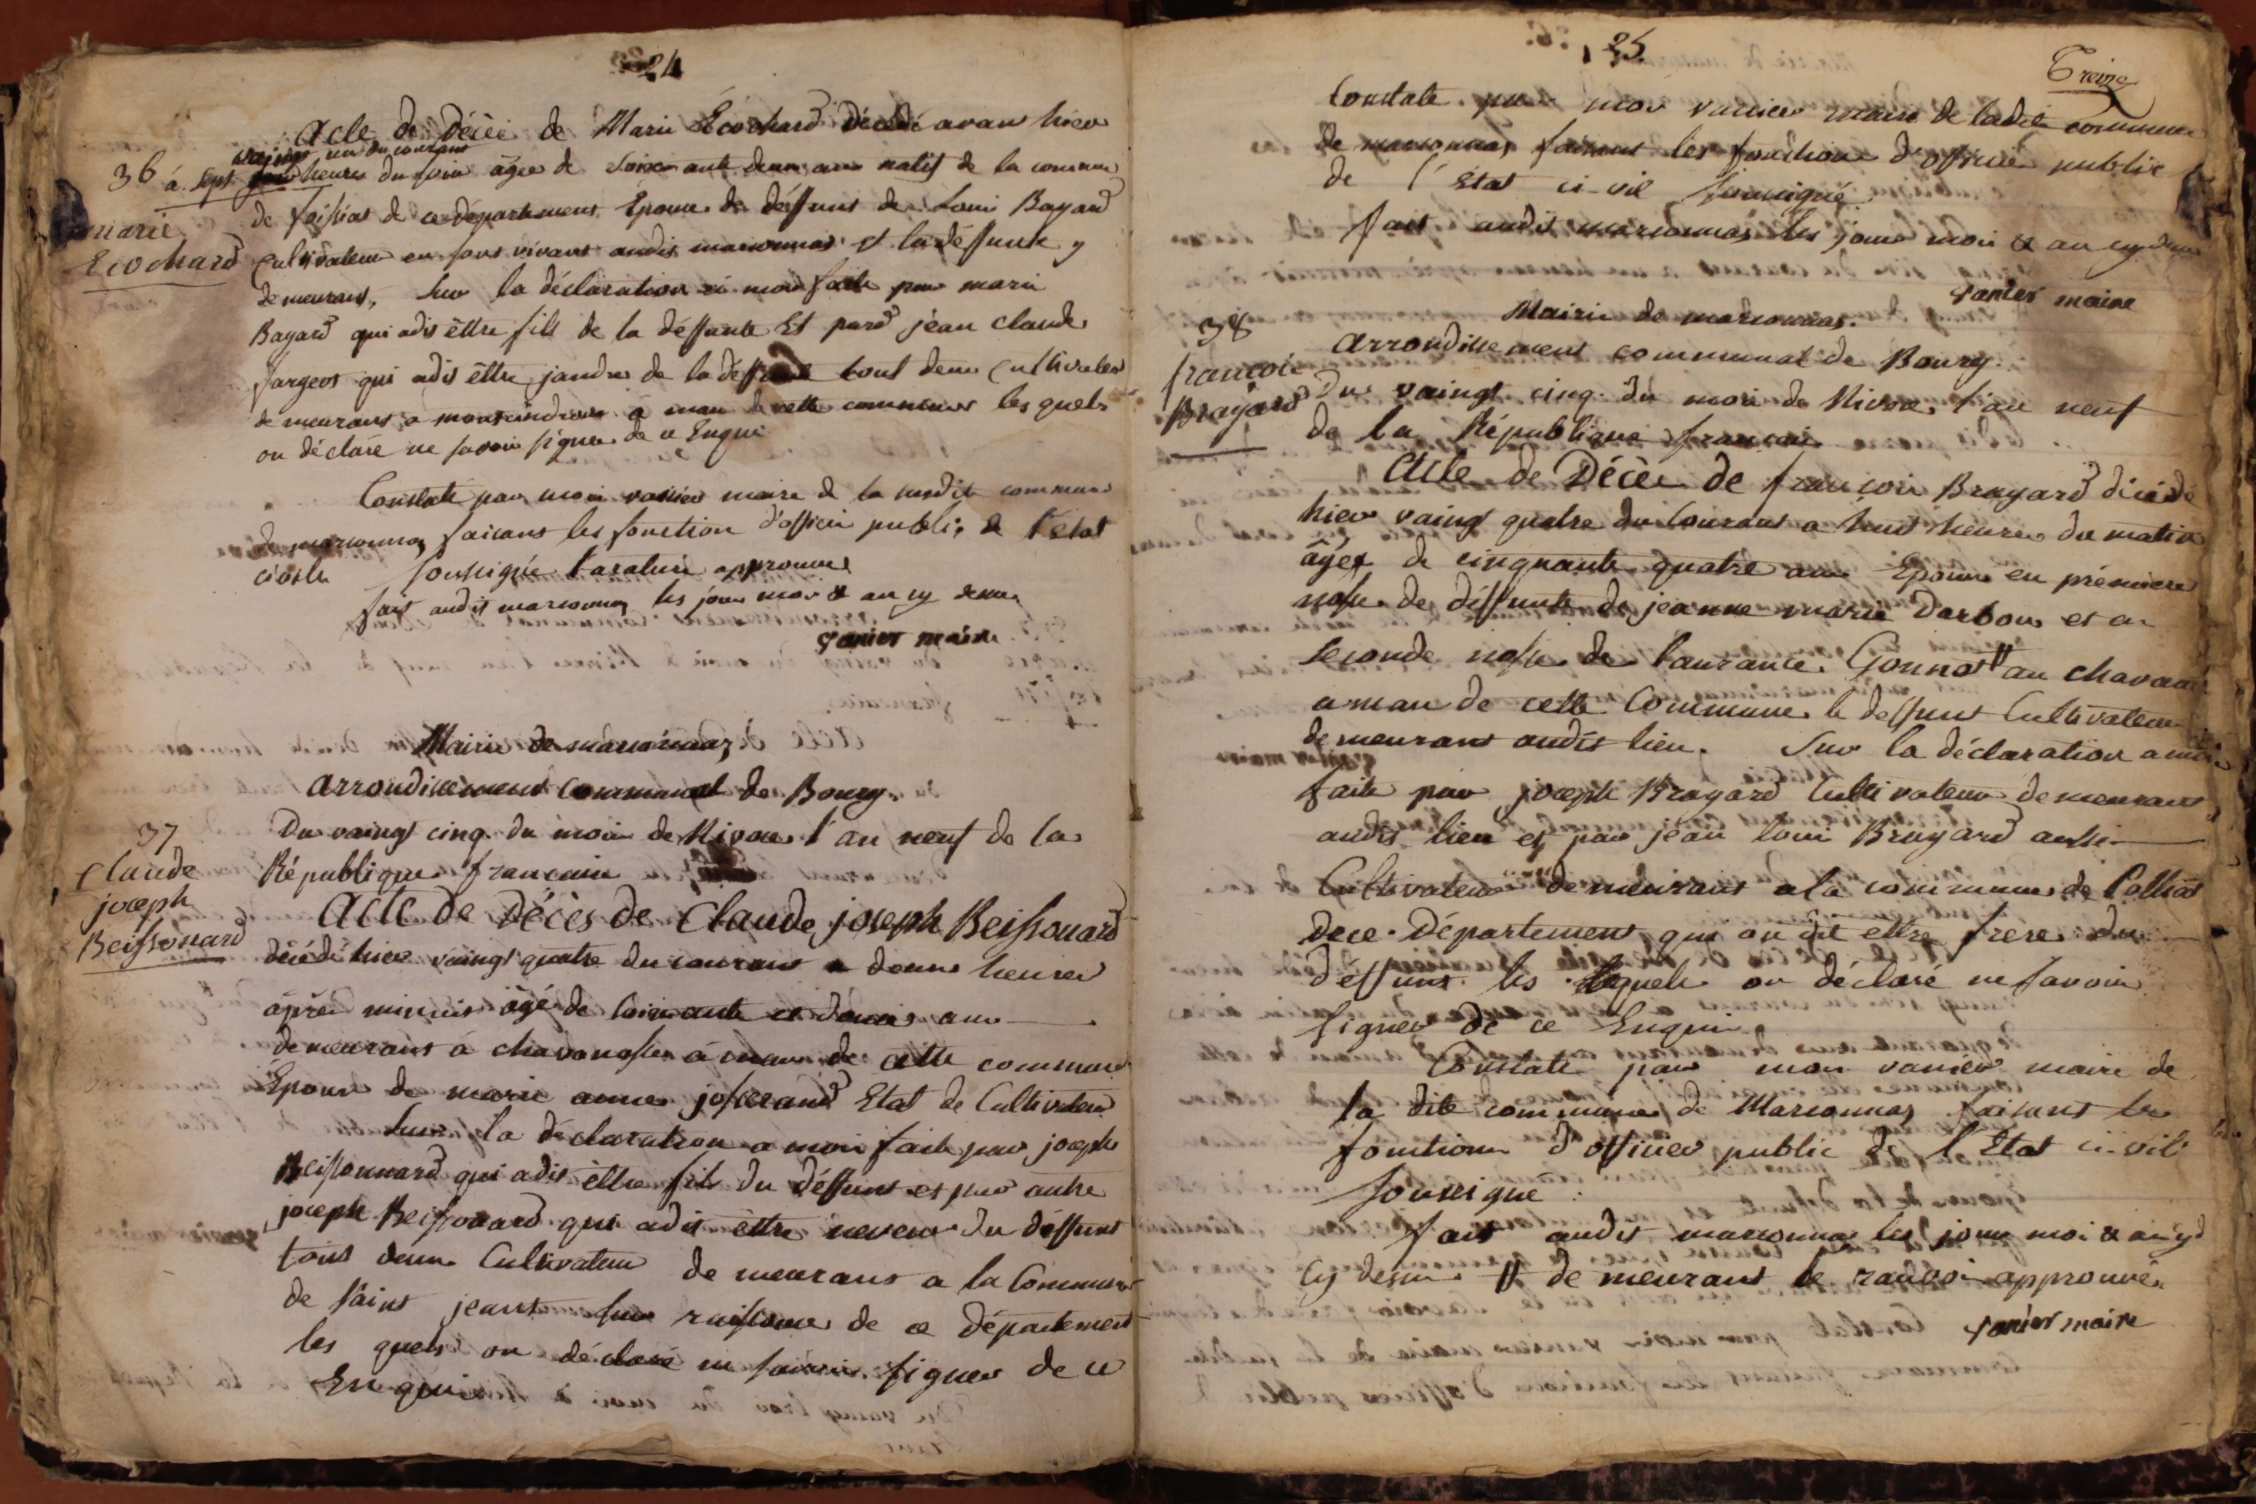 24
acte de Décès de Marie Écochard décédé avan hier
vaingt un du courant
36 à sept heures du soir âgée de soixante deux ans natif de la commune
marie
Ecochard
de foissiat de ce département Épouse de déffunt de Loui Bayard
cultivateur en sons vivant audit marsonnas et la déffunte y
demeurant, sur la déclaration à moi faite par marie
Bayard qui adit êttre fille de la déffunte Et pard jéan claude
fargeot qui adit êttre jandre de la déffunte tout deux cultivateur
demeurant a a man de cette commune les quels
on déclaré ne savoir signer de ce Enquit
Constaté par moi vanier maire de la susdite commune
de marsonnas faisant les fonction d'officié public de l'état
civile soussigné approuvé
fait audit marsonnas les jour moi & an cy dessu
vanier maire
Mairie de marsonnas
arrondissement communal de Bourg.
37
Claude
joseph
Beissonard
Du vaingt cinq du moi de Nivose l'an neuf de la
République francaise
Acte de Décès de Claude joseph Beissonard
décédé hier vaingt quatre du courant a douze heures
âprês minuit âgé de soixante et douze ans
demeurant à chavanosse à man de cette commune
Epoux de marie anne josserand Etat de Cultivateur
sur la déclaration a moi faite par joseph
Beissonnard qui adit êttre fils du déffunt et par autre
joseph Beissonard qui adit êttre neveux du déffunt
tous deux Cultivateur demeurant a la Commune
de saint jeant sur raissouse de ce département
les quels on déclaré ne savoir signer de ce
Enquit
25
Treize
Constaté par moi vanier maire de ladite commune
de marsonnas faisant les fonctions d'officier public
de l'Etat ci-vil soussigné
fait audit marsonnas les jour moi & an cy dessu
vanier maire
Mairie de marsonnas.
38
francois
Brayard
arrondissement communal de Bourg.
Du vaingt cinq du moi de Nivose l'an neuf
de la République francaise
Acte de Décès de francois Brayard décédé
hier vaingt quatre du Courant a huit heures du matin
âgé de cinquante quatre ans Epoux en premiere
nosse de déffunte de jeanne marie Darbon et en
seconde nosse de Laurance Gonnot # au chavanne
a man de cette Commune le deffunt Cultivateur
demeurant audit lieu. Sur la déclaration a moi
faite par joseph Brayard Cultivateur demeurant
audit lieu et par jéan loui Brayard aussi
Cultivateur demeurant a la commune de Calliat
de ce Département qui on dit êttre frere du
déffunt les lequels on déclaré ne savoir
signer de ce Enquit
Constaté par moi vanier maire de
la dite commune de Marsonnas faisant les
fonctions d'officier public de l'Etat ci-vil
soussigné
fait audit marsonnas les jour moi & an
cy dessu # demeurant le ranvoi approuvé
vanier maire